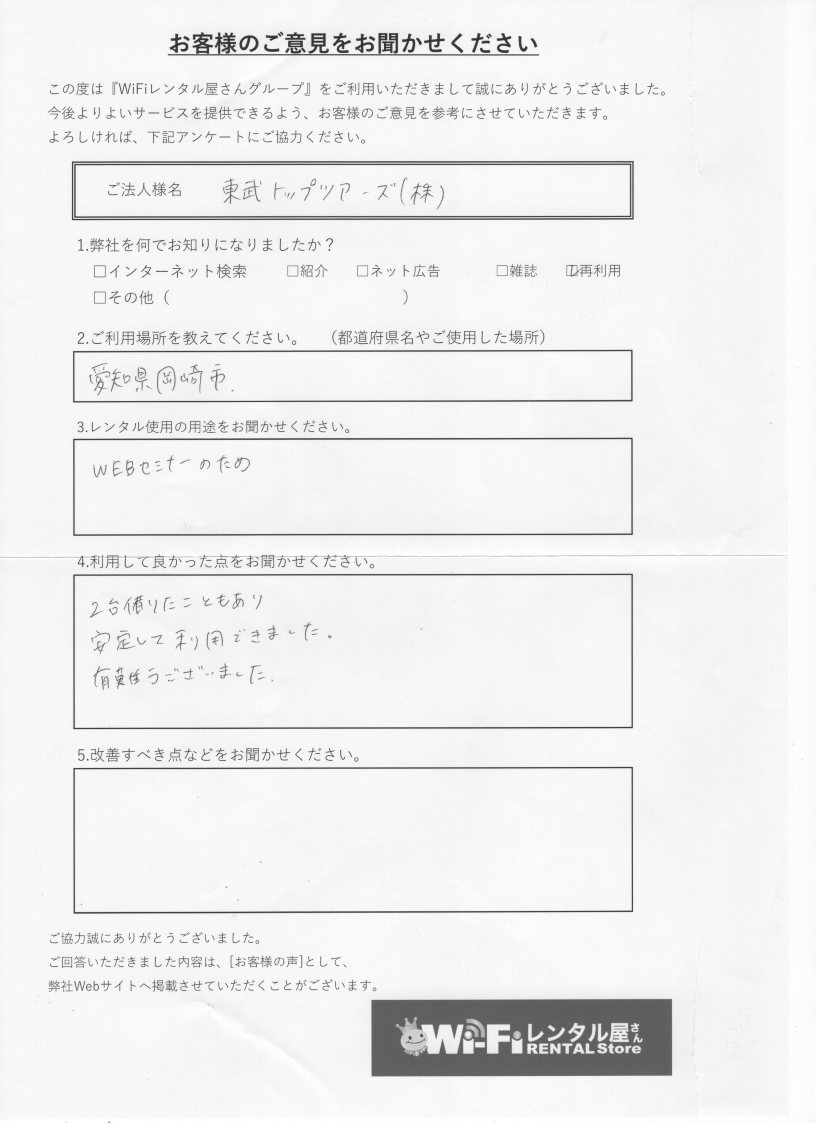 お客様のご意見をお聞かせください
この度は『WiFiレンタル屋さんグループ』をご利用いただきまして誠にありがとうございました。
今後よりよいサービスを提供できるよう、お客様のご意見を参考にさせていただきます。
よろしければ、下記アンケートにご協力ください。
ご法人様名 東武トップツアーズ(株)
1.弊社を何でお知りになりましたか？
□インターネット検索 □紹介 □ネット広告 □雑誌 ☑再利用
□その他（ ）
2.ご利用場所を教えてください。 （都道府県名やご使用した場所）
愛知県岡崎市.
3.レンタル使用の用途をお聞かせください。
WEBセミナーのため
4.利用して良かった点をお聞かせください。
2台借りたこともあり
安定して利用できました。
有難うございました.
5.改善すべき点などをお聞かせください。
ご協力誠にありがとうございました。
ご回答いただきました内容は、[お客様の声]として、
弊社Webサイトへ掲載させていただくことがございます。
Wi-Fiレンタル屋さん
RENTAL Store